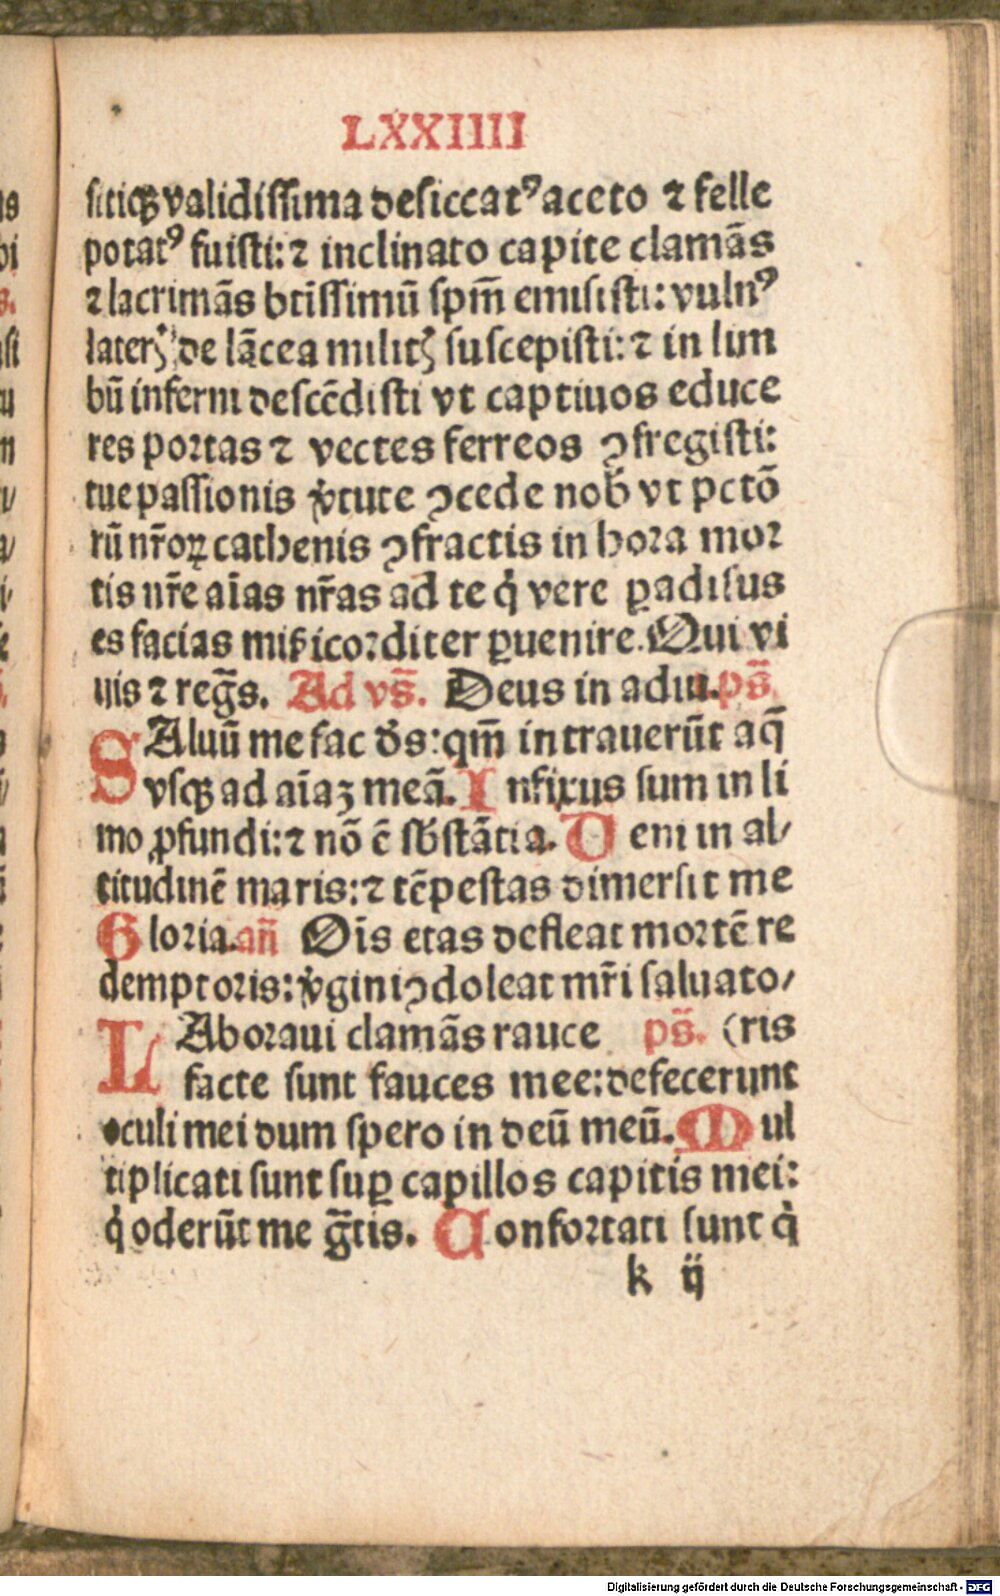 LXXIIII
sitiqꝫ validissima desiccatꝰ aceto ⁊ felle
potatꝰ fuisti: ⁊ inclinato capite clamãs
⁊ lacrimãs btĩssimũ spm̃ emisisti: vulnꝰ
laterꝭ de lãcea militꝭ suscepisti: ⁊ in lim
bũ inferni descẽdisti vt captiuos educe
res portas ⁊ vectes ferreos ꝯfregisti:
tue passionis v̉tute ꝯcede nob̃ vt pctõ
rũ nr̃oꝝ cathenis ꝯfractis in hora mor
tis nr̃e aĩas nr̃as ad te q̇ vere ꝑadisus
es facias mis̃icorditer ꝑuenire. Qui vi
uis ⁊ reg̃s. Ad vs̃. Deus in adiu. ps̃.
SAluũ me fac ds̃: qm̃ intrauerũt aq̃
vsqꝫ ad aĩaꝫ meã. Infixus sum in li
mo ꝓfundi: ⁊ nõ ẽ sb̃stãtia. Veni in al/
titudinẽ maris: ⁊ tẽpestas dimersit me
Gloria. añ Oĩs etas defleat mortẽ re
demptoris: v̉gini ꝯdoleat mr̃i saluato/
LAboraui clamãs rauce ps̃. (ris
facte sunt fauces mee: defecerunt
oculi mei dum spero in deũ meũ. Mul
tiplicati sunt suꝑ capillos capitis mei:
q̇ oderũt me g̃tis. Confortati sunt q̇
k ij
Digitalisierung gefördert durch die Deutsche Forschungsgemeinschaft - DFG